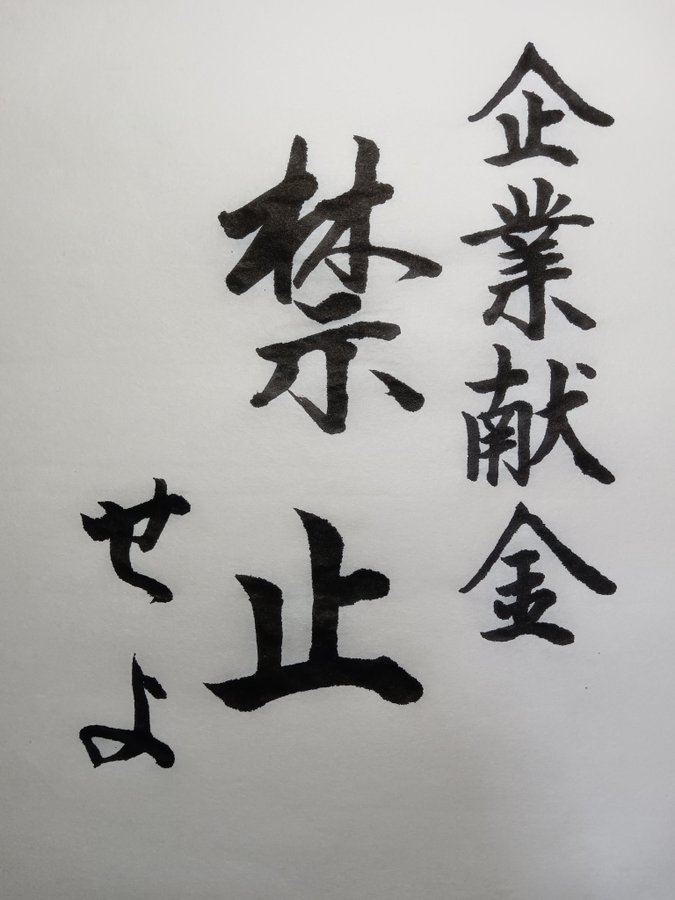 企業献金
禁止
せよ